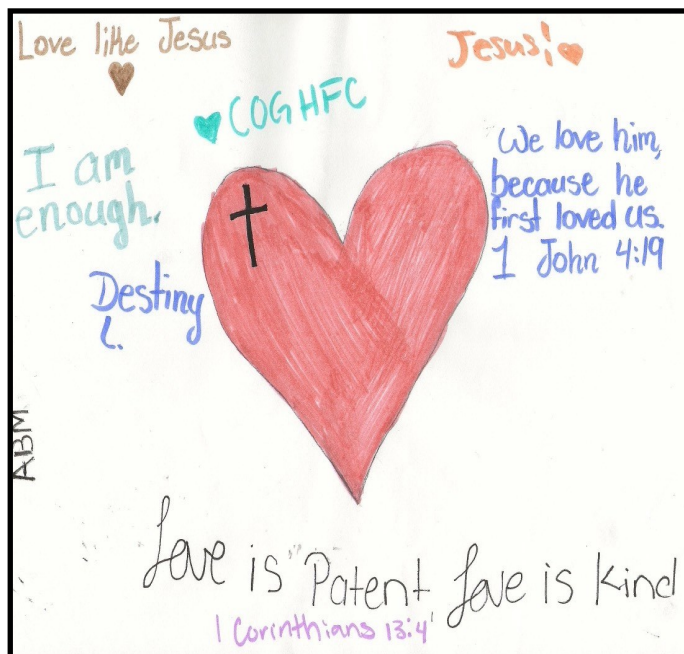 Love like Jesus
Jesus!
COGHFC
I am
enough.
We love him,
because he
first loved us.
1 John 4:19
Destiny
L.
ABM
Love is Patent, Love is Kind
1 Corinthians 13:4